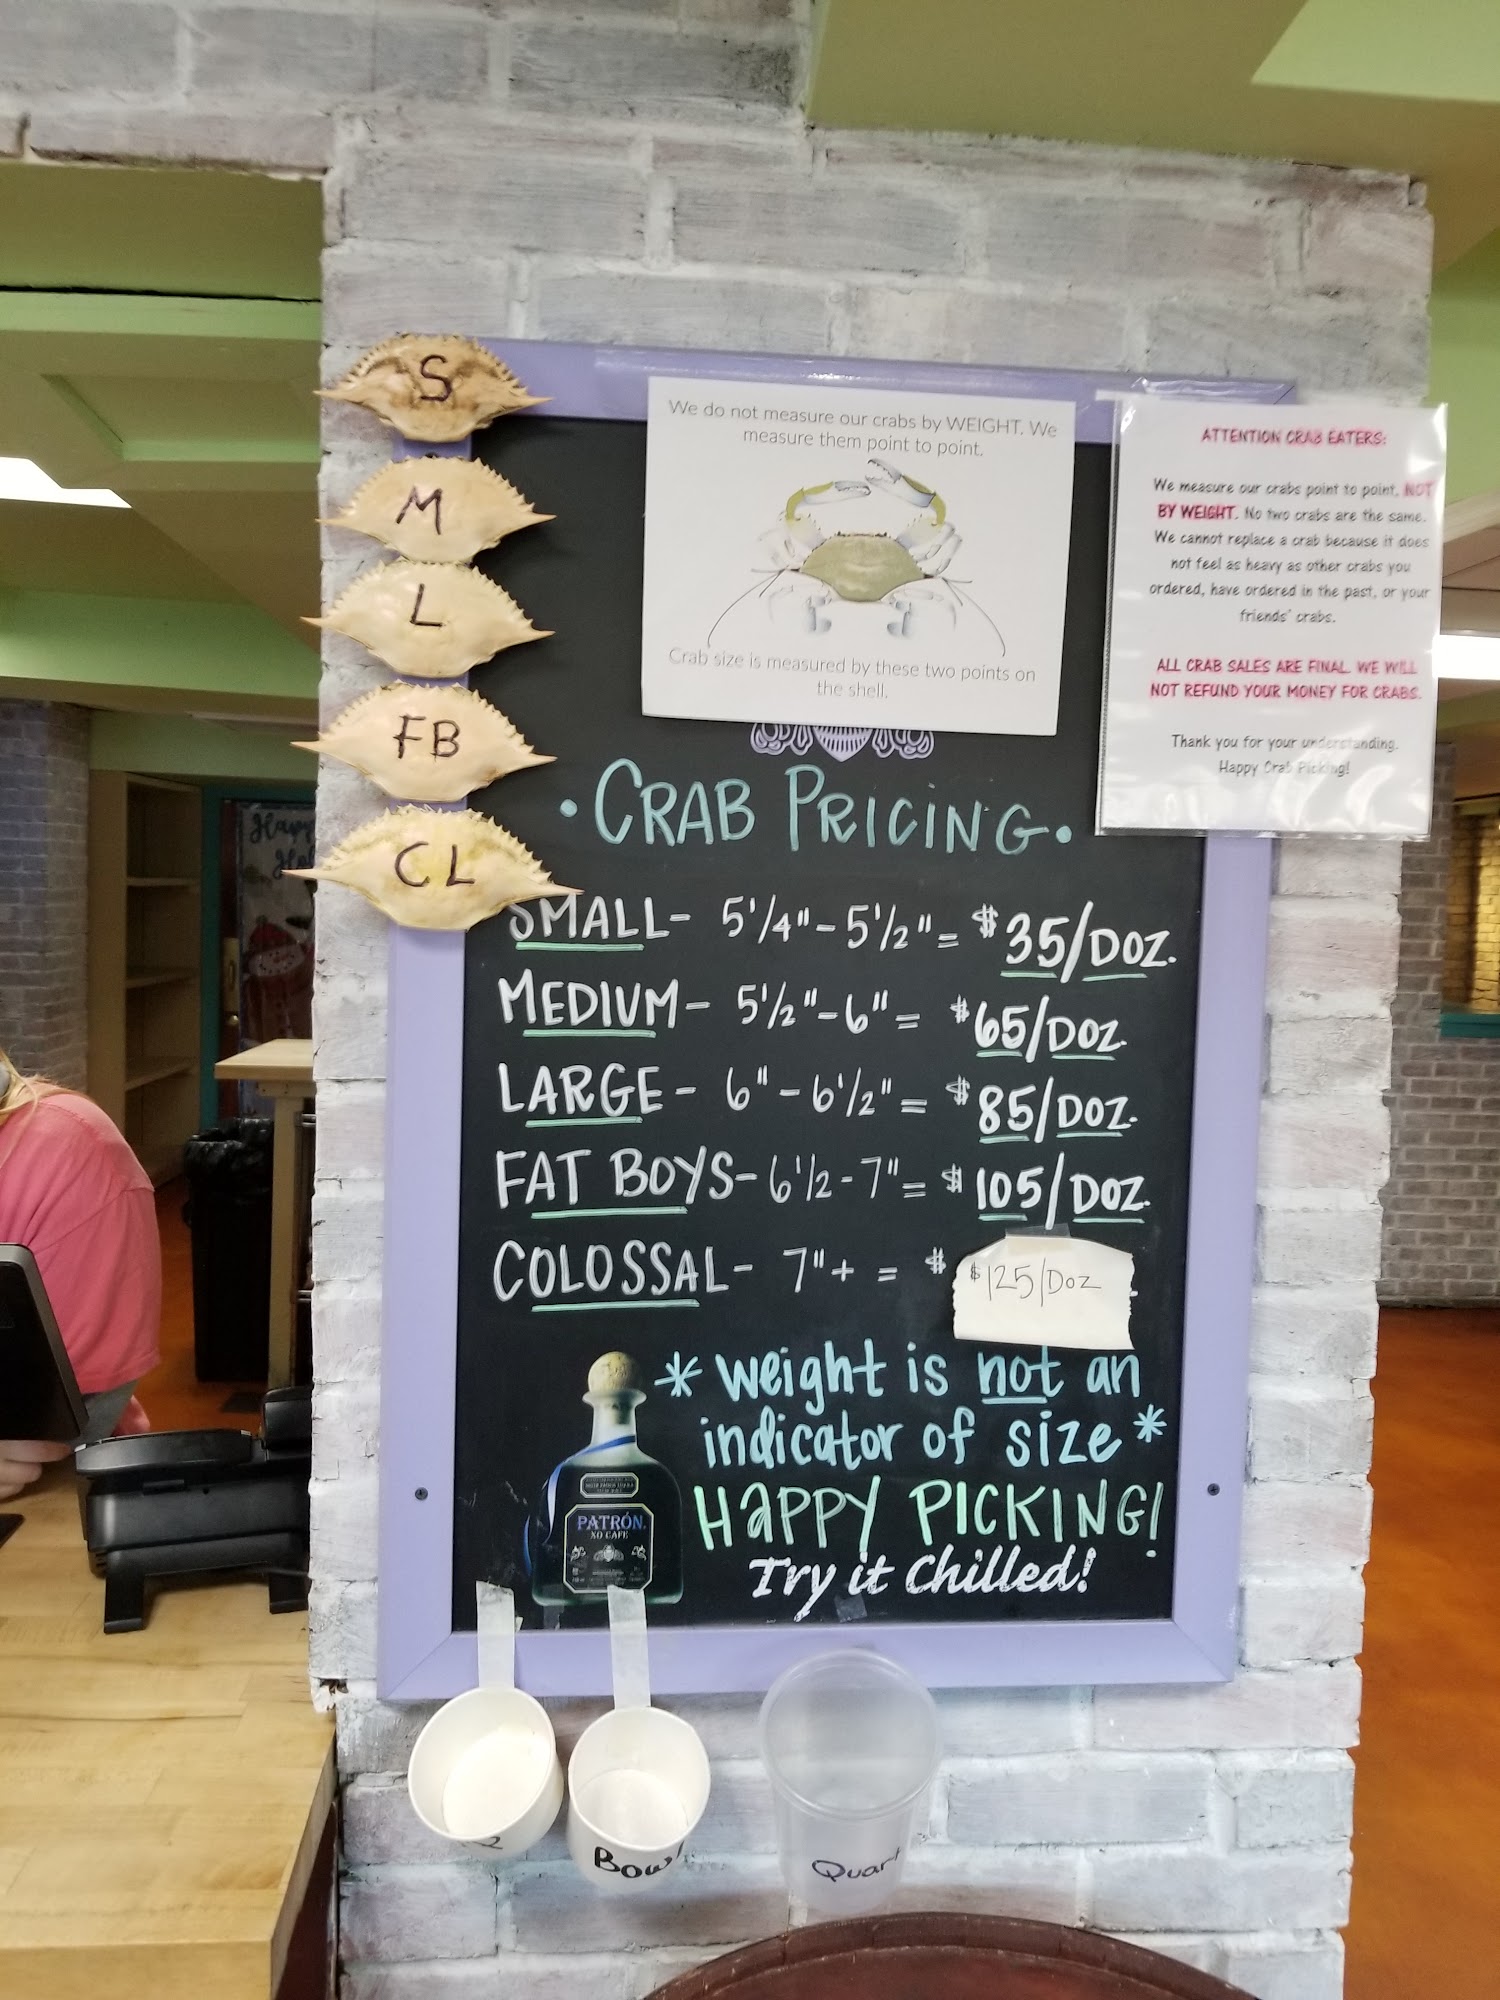 S
M
L
FB
CL
We do not measure our crabs by WEIGHT. We
measure them point to point.
Crab size is measured by these two points on
the shell.
ATTENTION CRAB EATERS:
We measure our crabs point to point, NOT
BY WEIGHT. No two crabs are the same.
We cannot replace a crab because it does
not feel as heavy as other crabs you
ordered, have ordered in the past, or your
friends' crabs.
ALL CRAB SALES ARE FINAL. WE WILL
NOT REFUND YOUR MONEY FOR CRABS.
Thank you for your understanding.
Happy Crab Picking!
• CRAB PRICING •
SMALL - 5 1/4" - 5 1/2" = $35/DOZ.
MEDIUM - 5 1/2" - 6" = $65/DOZ.
LARGE - 6" - 6 1/2" = $85/DOZ.
FAT BOYS - 6 1/2 - 7" = $105/DOZ.
COLOSSAL - 7"+ = $ $125/DOZ
* weight is not an
indicator of size *
HAPPY PICKING!
Try it Chilled!
PATRÓN
XO CAFE
Bowl
Quart